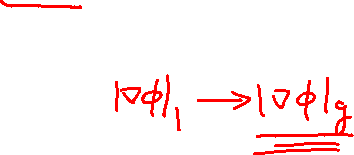 |∇ϕ|₁ → |∇ϕ|g